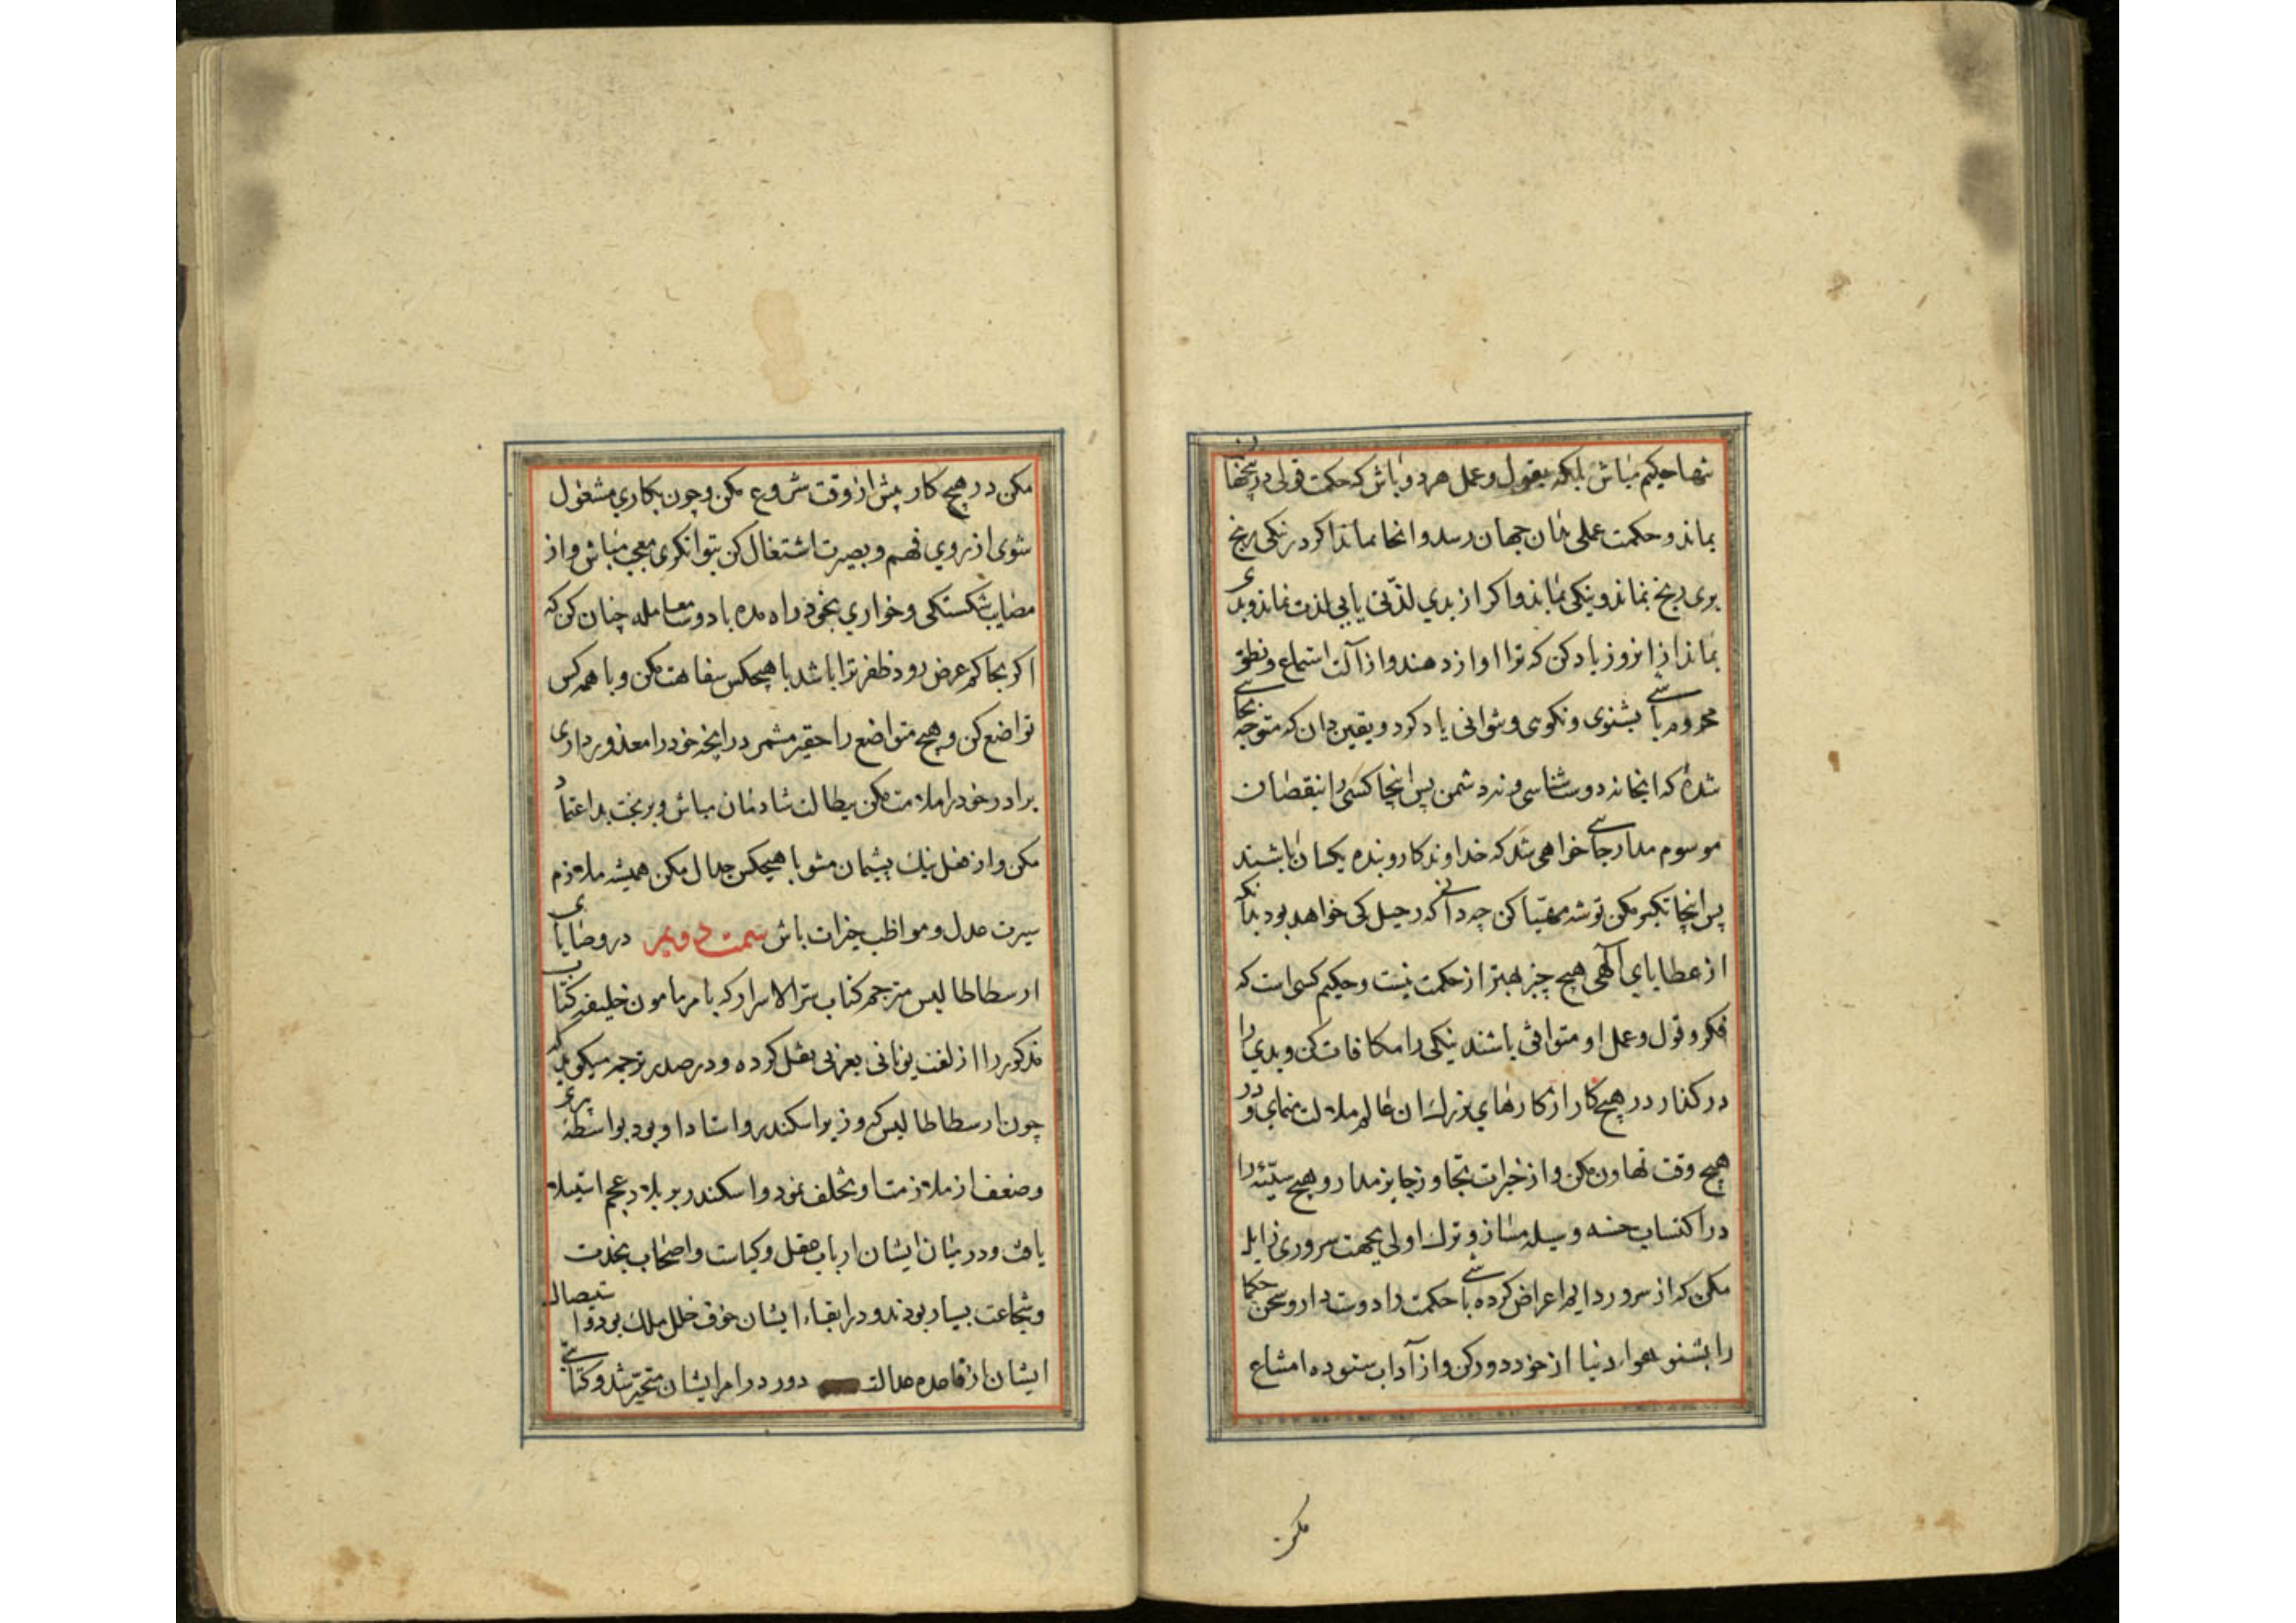 تنها حکیم مباش بلکه بقول و عمل هردو باش که حکمت قولی درینجهان
بماند و حکمت عملی بدان جهان رسد و انجا بماند اگر در نیکی رنج
بری رنج نماند و نیکی بماند و اگر از بدی لذتی یابی لذت نماند و بدی
بماند از انروز یاد کن که ترا اواز دهند و از آلت استماع و نطق
محروم باشی نشنوی و نگوی و نتوانی یاد کرد و یقین دان که متوجه بجائی
شدهٔ که انجا نه دوست شناسی و نه دشمن پس اینجا کسی را بنقصان
موسوم مدار جائی خواهی شد که خداوندکار و بنده یکسان باشند
پس اینجا تکبر مکن توشه مهیا کن چه دانی که رحیل کی خواهد بود بدانکه
از عطایای آلهی هیچ چیز بهتر از حکمت نیست و حکیم کسی است که
فکر و قول و عمل او متوافق باشند نیکی را مکافات کن و بدی را
درگذار در هیچ کار از کارهای بزرک ان عالم ملالت منمای و در
هیچ وقت تهاون مکن و از خیرات تجاوز جایز مدار و هیچ سیئه را
در اکتساب حسنه وسیله مساز و ترک اولی بجهت سروری زایل
مکن که از سرور دایم اعراض کرده باشی حکمت را دوست دار و سخن حکما
را بشنو هوا دنیا از خود دور کن و از آداب ستوده امتناع
مکن
مکن در هیچ کار پیش از وقت شروع مکن و چون بکاری مشغول
شوی از روی فهم و بصیرت اشتغال کن بتوانکری معجب مباش و از
مصایب شکستکی و خواری بخود راه مده با دوست معامله چنان کن که
اکر بحاکم عرض رود ظفر ترا باشد با هیچکس سفاهت مکن و با همه کس
تواضع کن و هیچ متواضع را حقیر مشمر در انچه خود را معذور داری
برادر خود را ملامت مکن ببطالت شادمان مباش و بر بخت بد اعتماد
مکن و از فعل نیک پشیمان مشو با هیچکس جدال مکن همیشه ملازم
سیرت عدل و مواظب خیرات باش سمت دویم در وصایای
ارسطاطالیس مترجم کتاب سر الاسرار که بامر مامون خلیفه کتاب
مذکور را از لغت یونانی بعربی نقل کرده و در صدر ترجمه میکوید که
چون ارسطاطالیس که وزیر اسکندر و استاد او بود بواسطهٔ پیری
و ضعف از ملازمت او تخلف نمود و اسکندر بر بلاد عجم استیلا
یافت و در میان ایشان ارباب عقل و کیاست و اصحاب نجدت
و شجاعت بسیار بودند و در ابقاء ایشان خوف خلل ملک بود و استیصال
ایشان از قاعده عدالت دور در امر ایشان متحیر شد و کتابتی